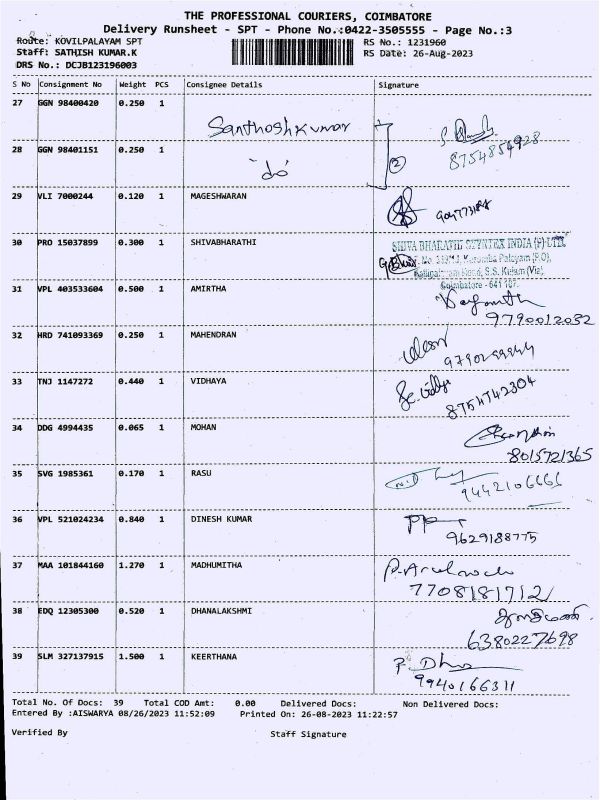 THE PROFESSIONAL COURIERS, COIMBATORE
Delivery Runsheet - SPT - Phone No.:0422-3505555 - Page No.:3
Route: KOVILPALAYAM SPT RS No.: 1231960
Staff: SATHISH KUMAR.K RS Date: 26-Aug-2023
DRS No.: DCJB123196003
S No Consignment No Weight PCS Consignee Details Signature
27 GGN 98400420 0.250 1 Santhoshkumar
28 GGN 98401151 0.250 1 "do" 2 8754854928
29 VLI 7000244 0.120 1 MAGESHWARAN
30 PRO 15037899 0.300 1 SHIVABHARATHI SHIVA BHARATHI INDIA (P) LTD.
Kurumba Palayam (P.O),
S.S. Kulam (Via),
Coimbatore - 641 107.
31 VPL 403533604 0.500 1 AMIRTHA 9790012032
32 HRD 741093369 0.250 1 MAHENDRAN
33 TNJ 1147272 0.440 1 VIDHAYA 8754742304
34 DDG 4994435 0.065 1 MOHAN 8015721365
35 SVG 1985361 0.170 1 RASU 9442106666
36 VPL 521024234 0.840 1 DINESH KUMAR 9629188775
37 MAA 101844160 1.270 1 MADHUMITHA 7708181712
38 EDQ 12305300 0.520 1 DHANALAKSHMI 6380227698
39 SLM 327137915 1.500 1 KEERTHANA 9940166311
Total No. Of Docs: 39 Total COD Amt: 0.00 Delivered Docs: Non Delivered Docs:
Entered By :AISWARYA 08/26/2023 11:52:09 Printed On: 26-08-2023 11:22:57
Verified By Staff Signature